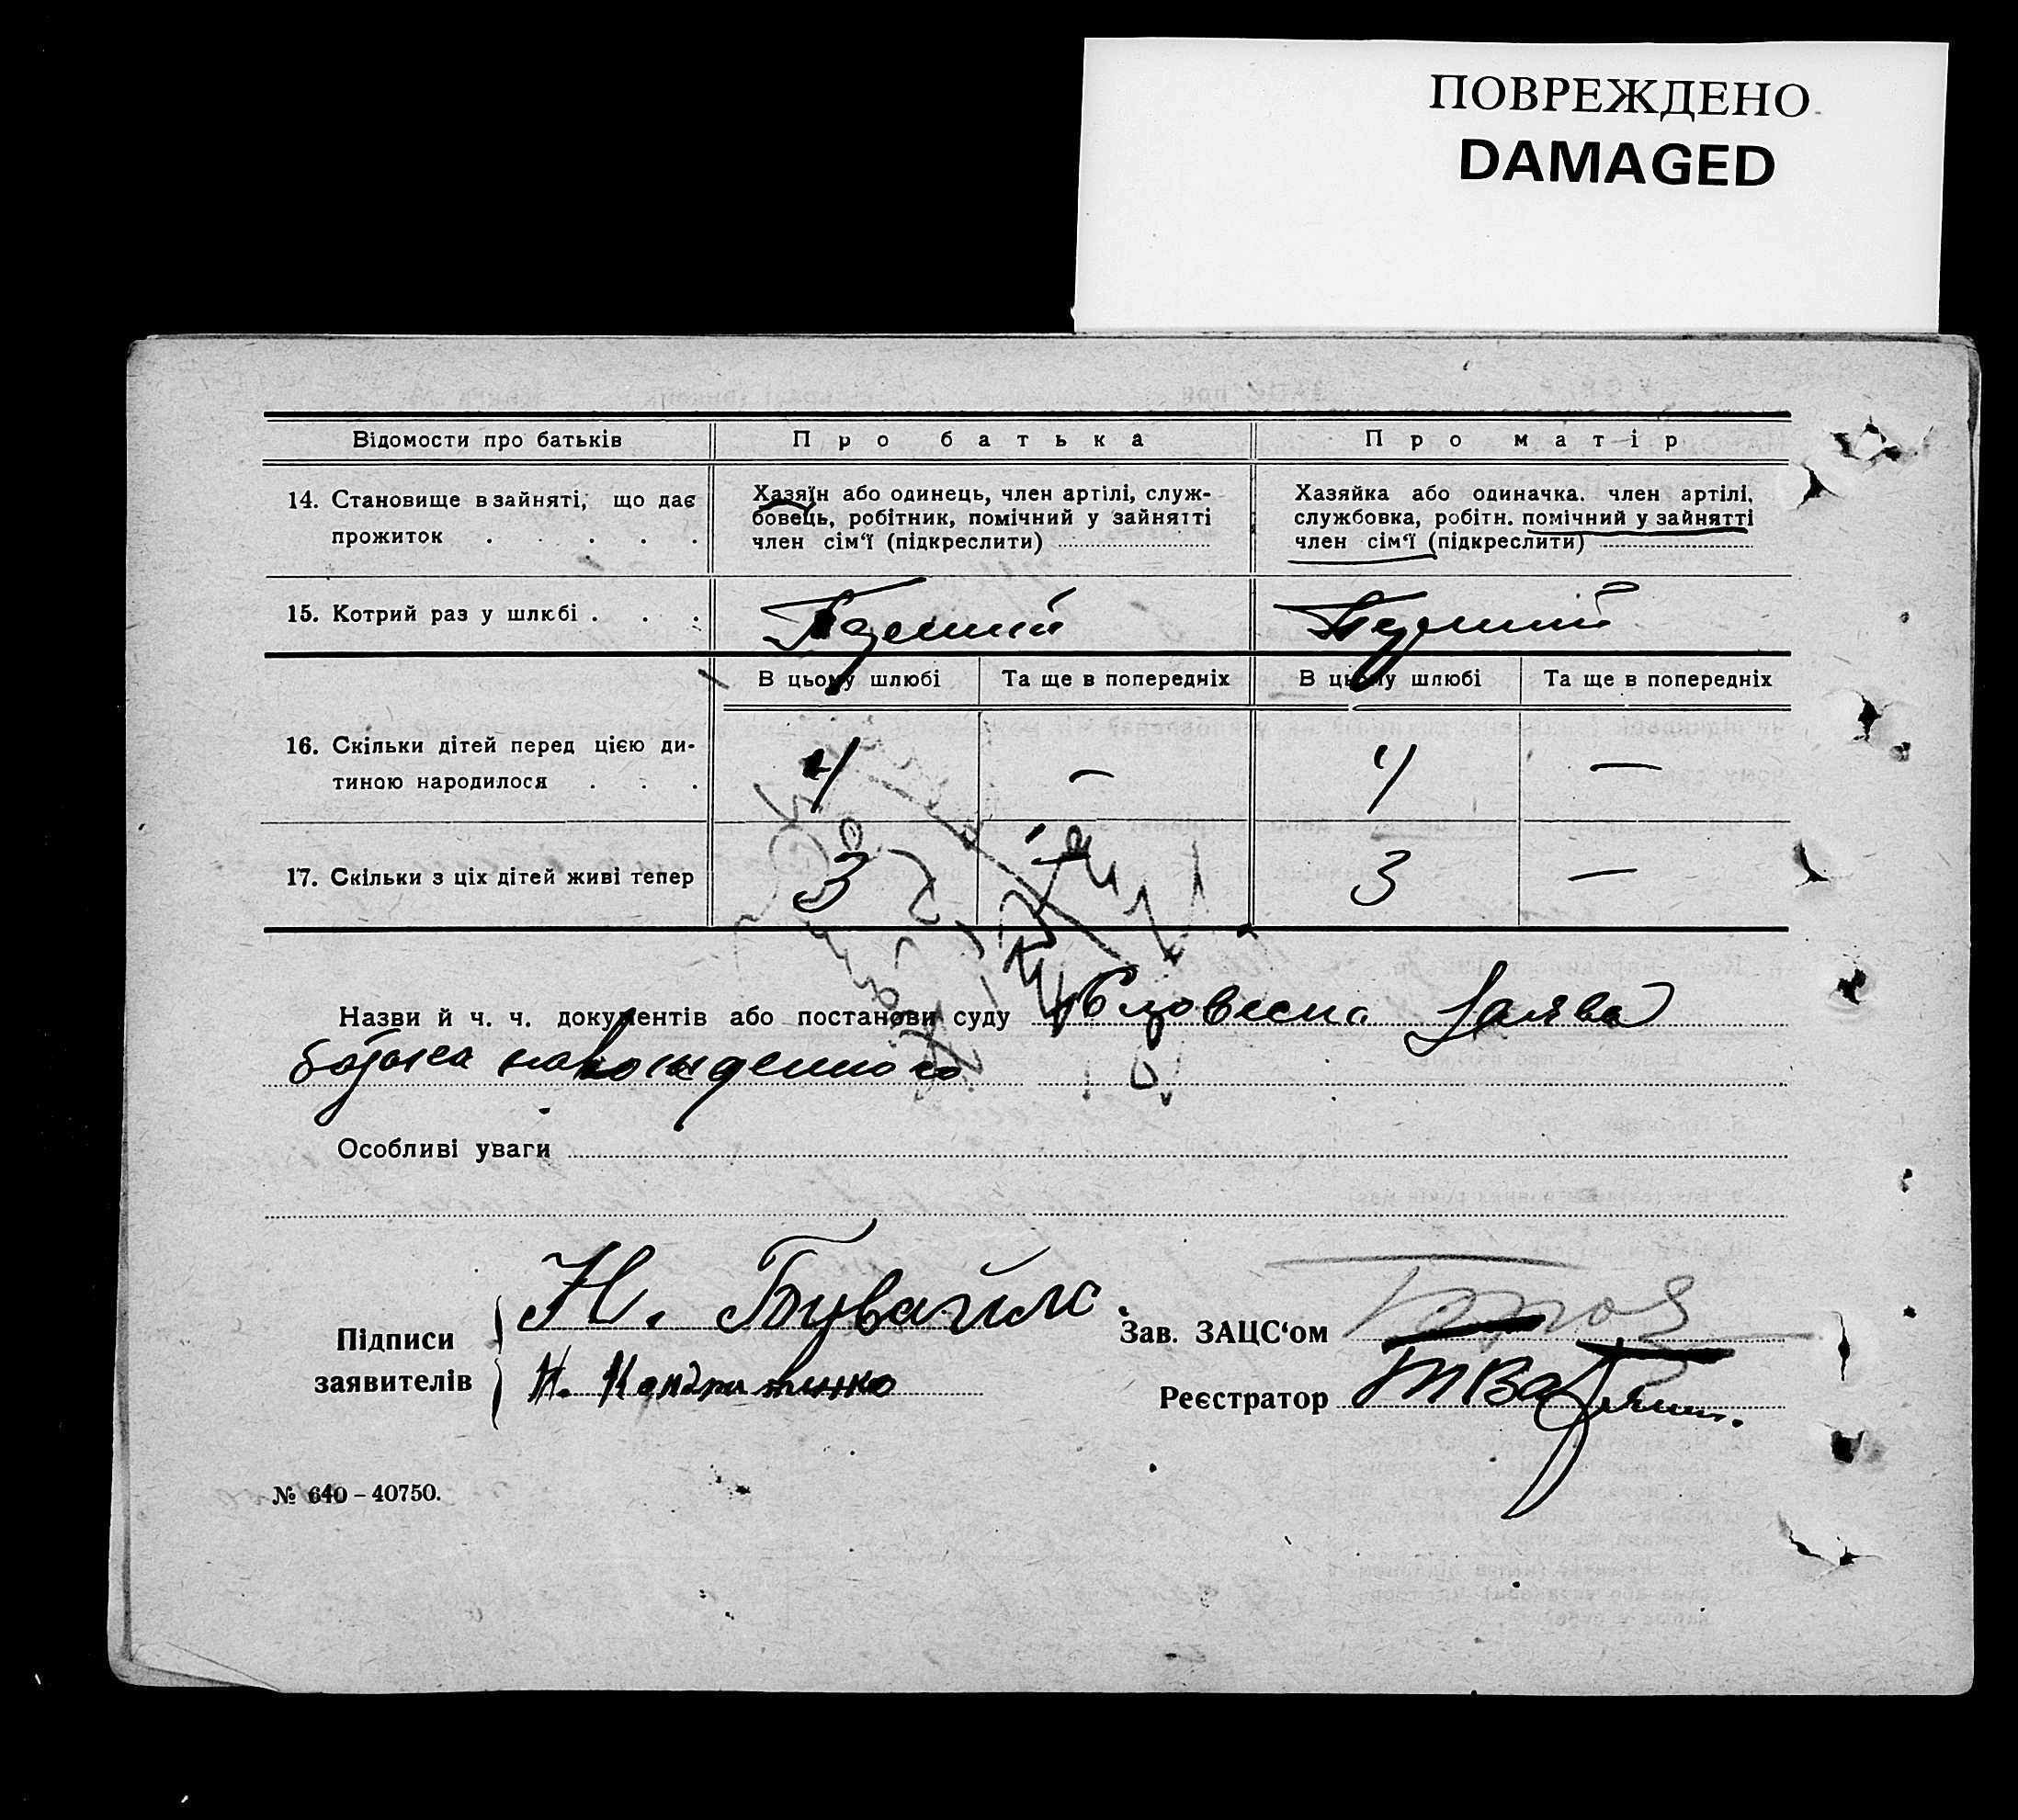 ПОВРЕЖДЕНО
DAMAGED
Відомости про батьків
Про батька
Про матір
14. Становище в зайняті, що дає
прожиток . . . . .
Хазяїн або одинець, член артілі, служ-
бовець, робітник, помічний у зайнятті
член сім‘ї (підкреслити)
Хазяйка або одиначка. член артілі,
службовка, робітн. помічний у зайнятті
член сім‘ї (підкреслити)
15. Котрий раз у шлюбі . . .
В цьому шлюбі
Та ще в попередніх
В цьому шлюбі
Та ще в попередніх
16. Скільки дітей перед цією ди-
тиною народилося . . .
4 — 4 —
17. Скільки з ціх дітей живі тепер
3 3 —
Назви й ч. ч. документів або постанови суду Словесна Заява
батька
Особливі уваги
Підписи
заявителів
Н.
Н. Кондратенко
Зав. ЗАЦС‘ом
Реєстратор
№ 640 – 40750.